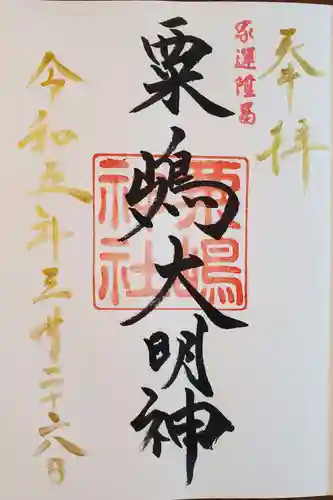 奉拝
家運隆昌
粟嶋大明神
粟嶋神社
令和五年三月二十六日